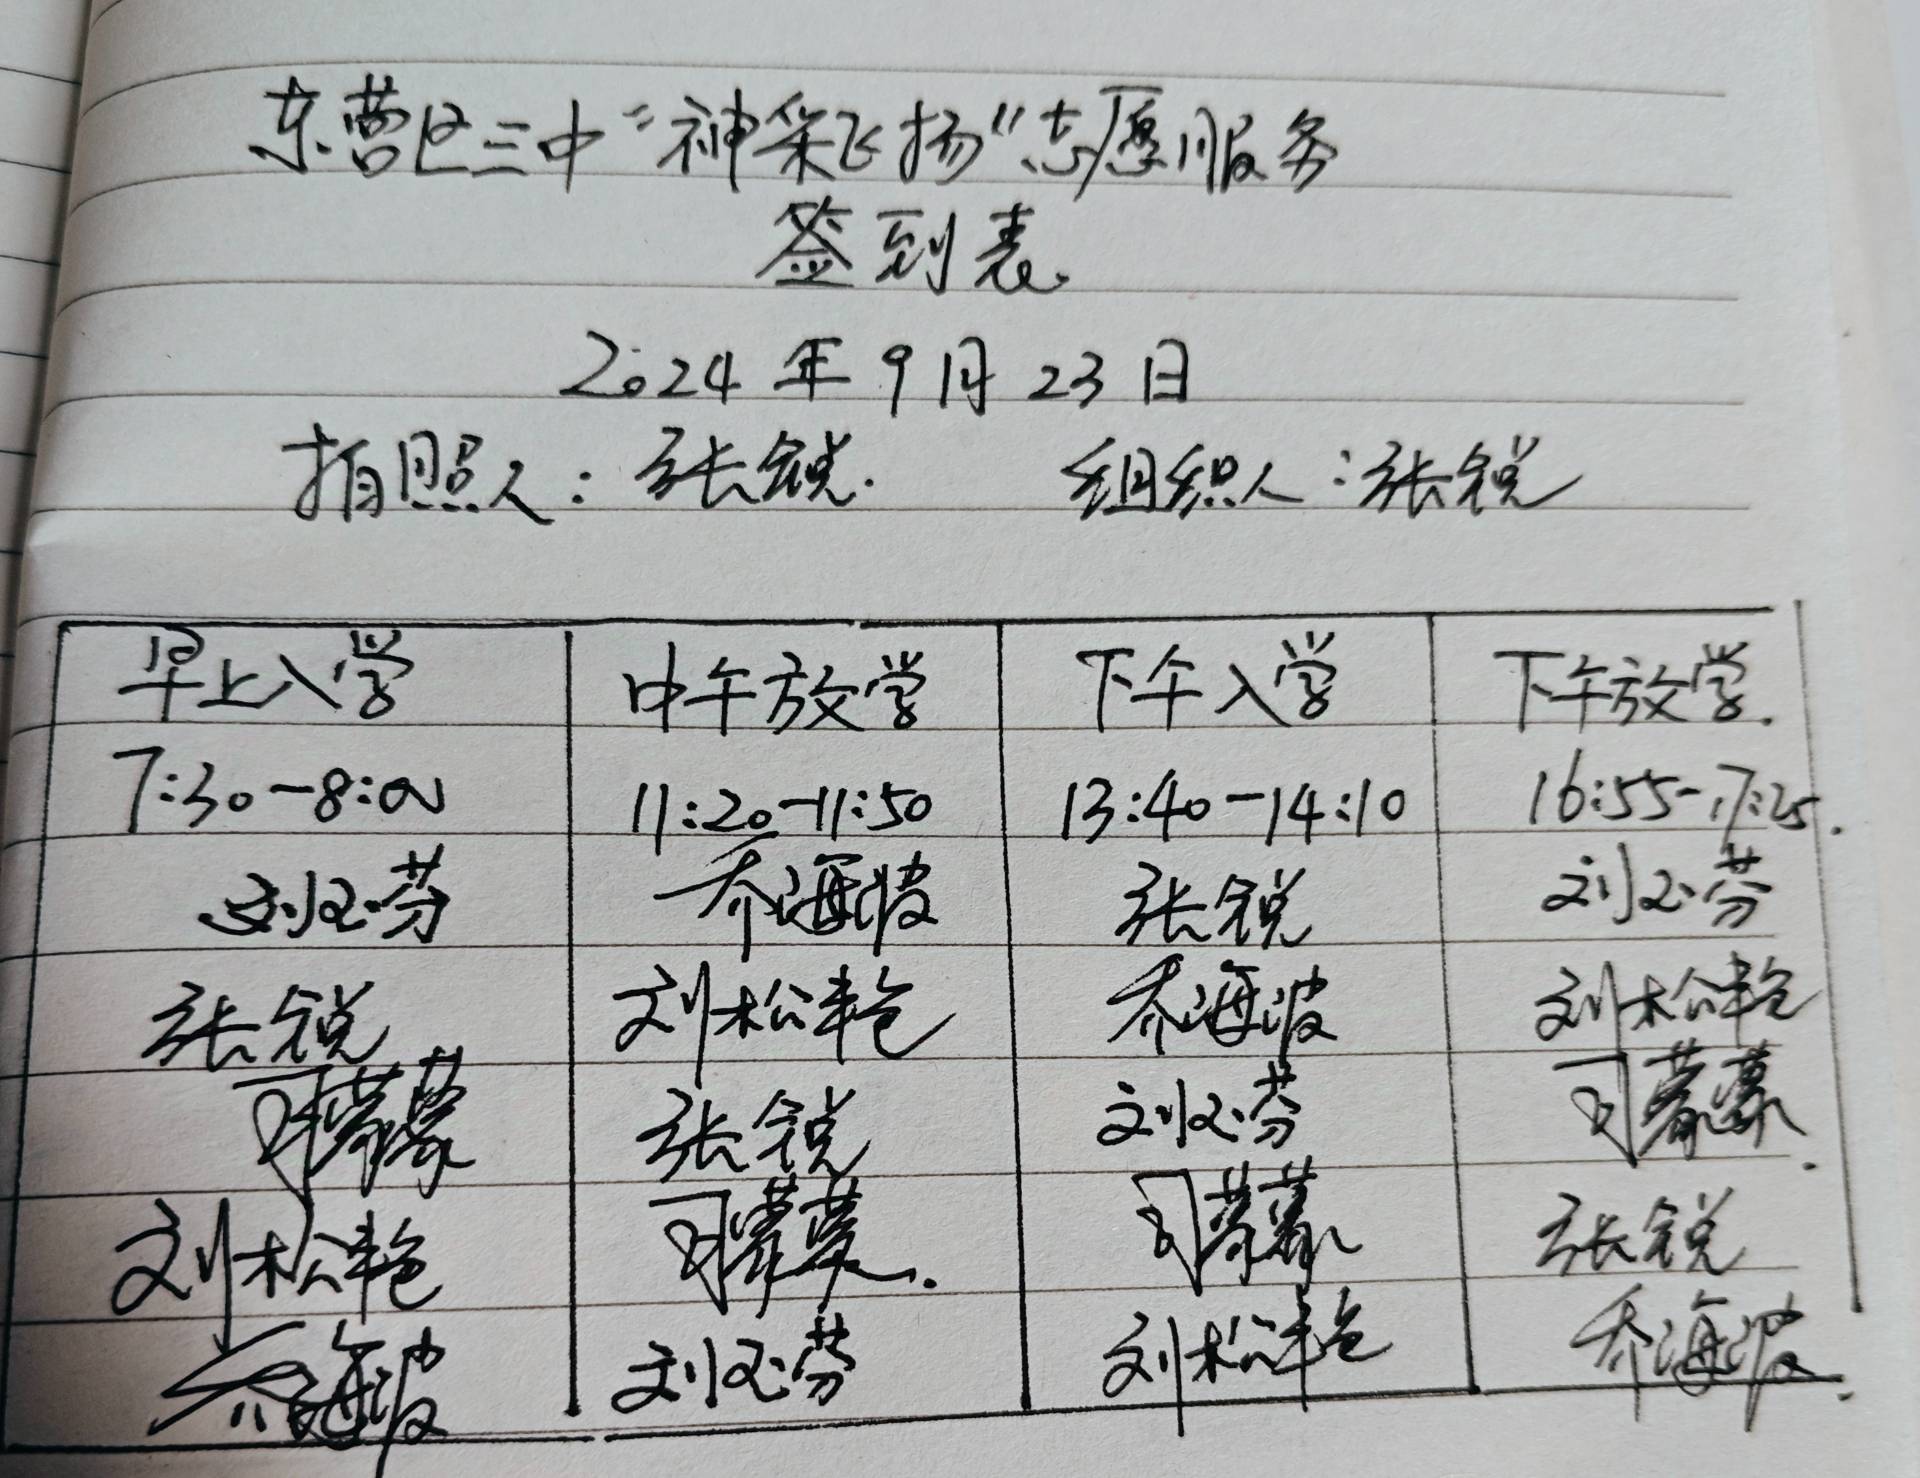 东营区三中“神采飞扬”志愿服务
签到表
2024年9月23日
拍照人：张锐. 组织人：张锐
早上入学 中午放学 下午入学 下午放学.
7:30-8:00 11:20-11:50 13:40-14:10 16:55-17:25.
刘玉芬 乔海波 张锐 刘玉芬
张锐 刘松艳 乔海波 刘松艳
司 张锐 刘玉芬 司
刘松艳 司 司 张锐
乔海波 刘玉芬 刘松艳 乔海波